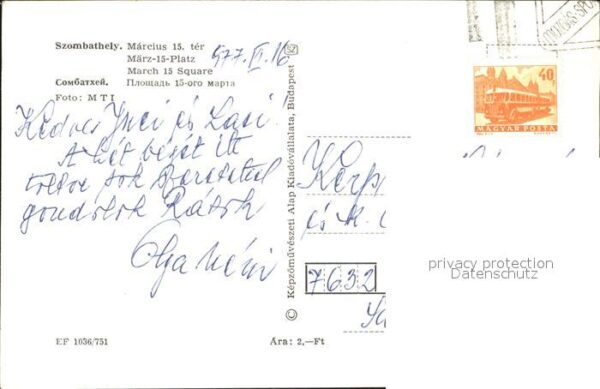 Szombathely. Március 15. tér
März-15-Platz
March 15 Square
Сомбатхей. Площадь 15-ого марта
Foto: MTI
977. VI. 16
Kedves Inci és Laci!
A hét végét itt
töltve sok szeretettel
gondolok Rátok
Olga néni
EF 1036/751
Ára: 2,—Ft
© Képzőművészeti Alap Kiadóvállalata, Budapest
Kerp
és
7632
40
MAGYAR POSTA
privacy protection
Datenschutz